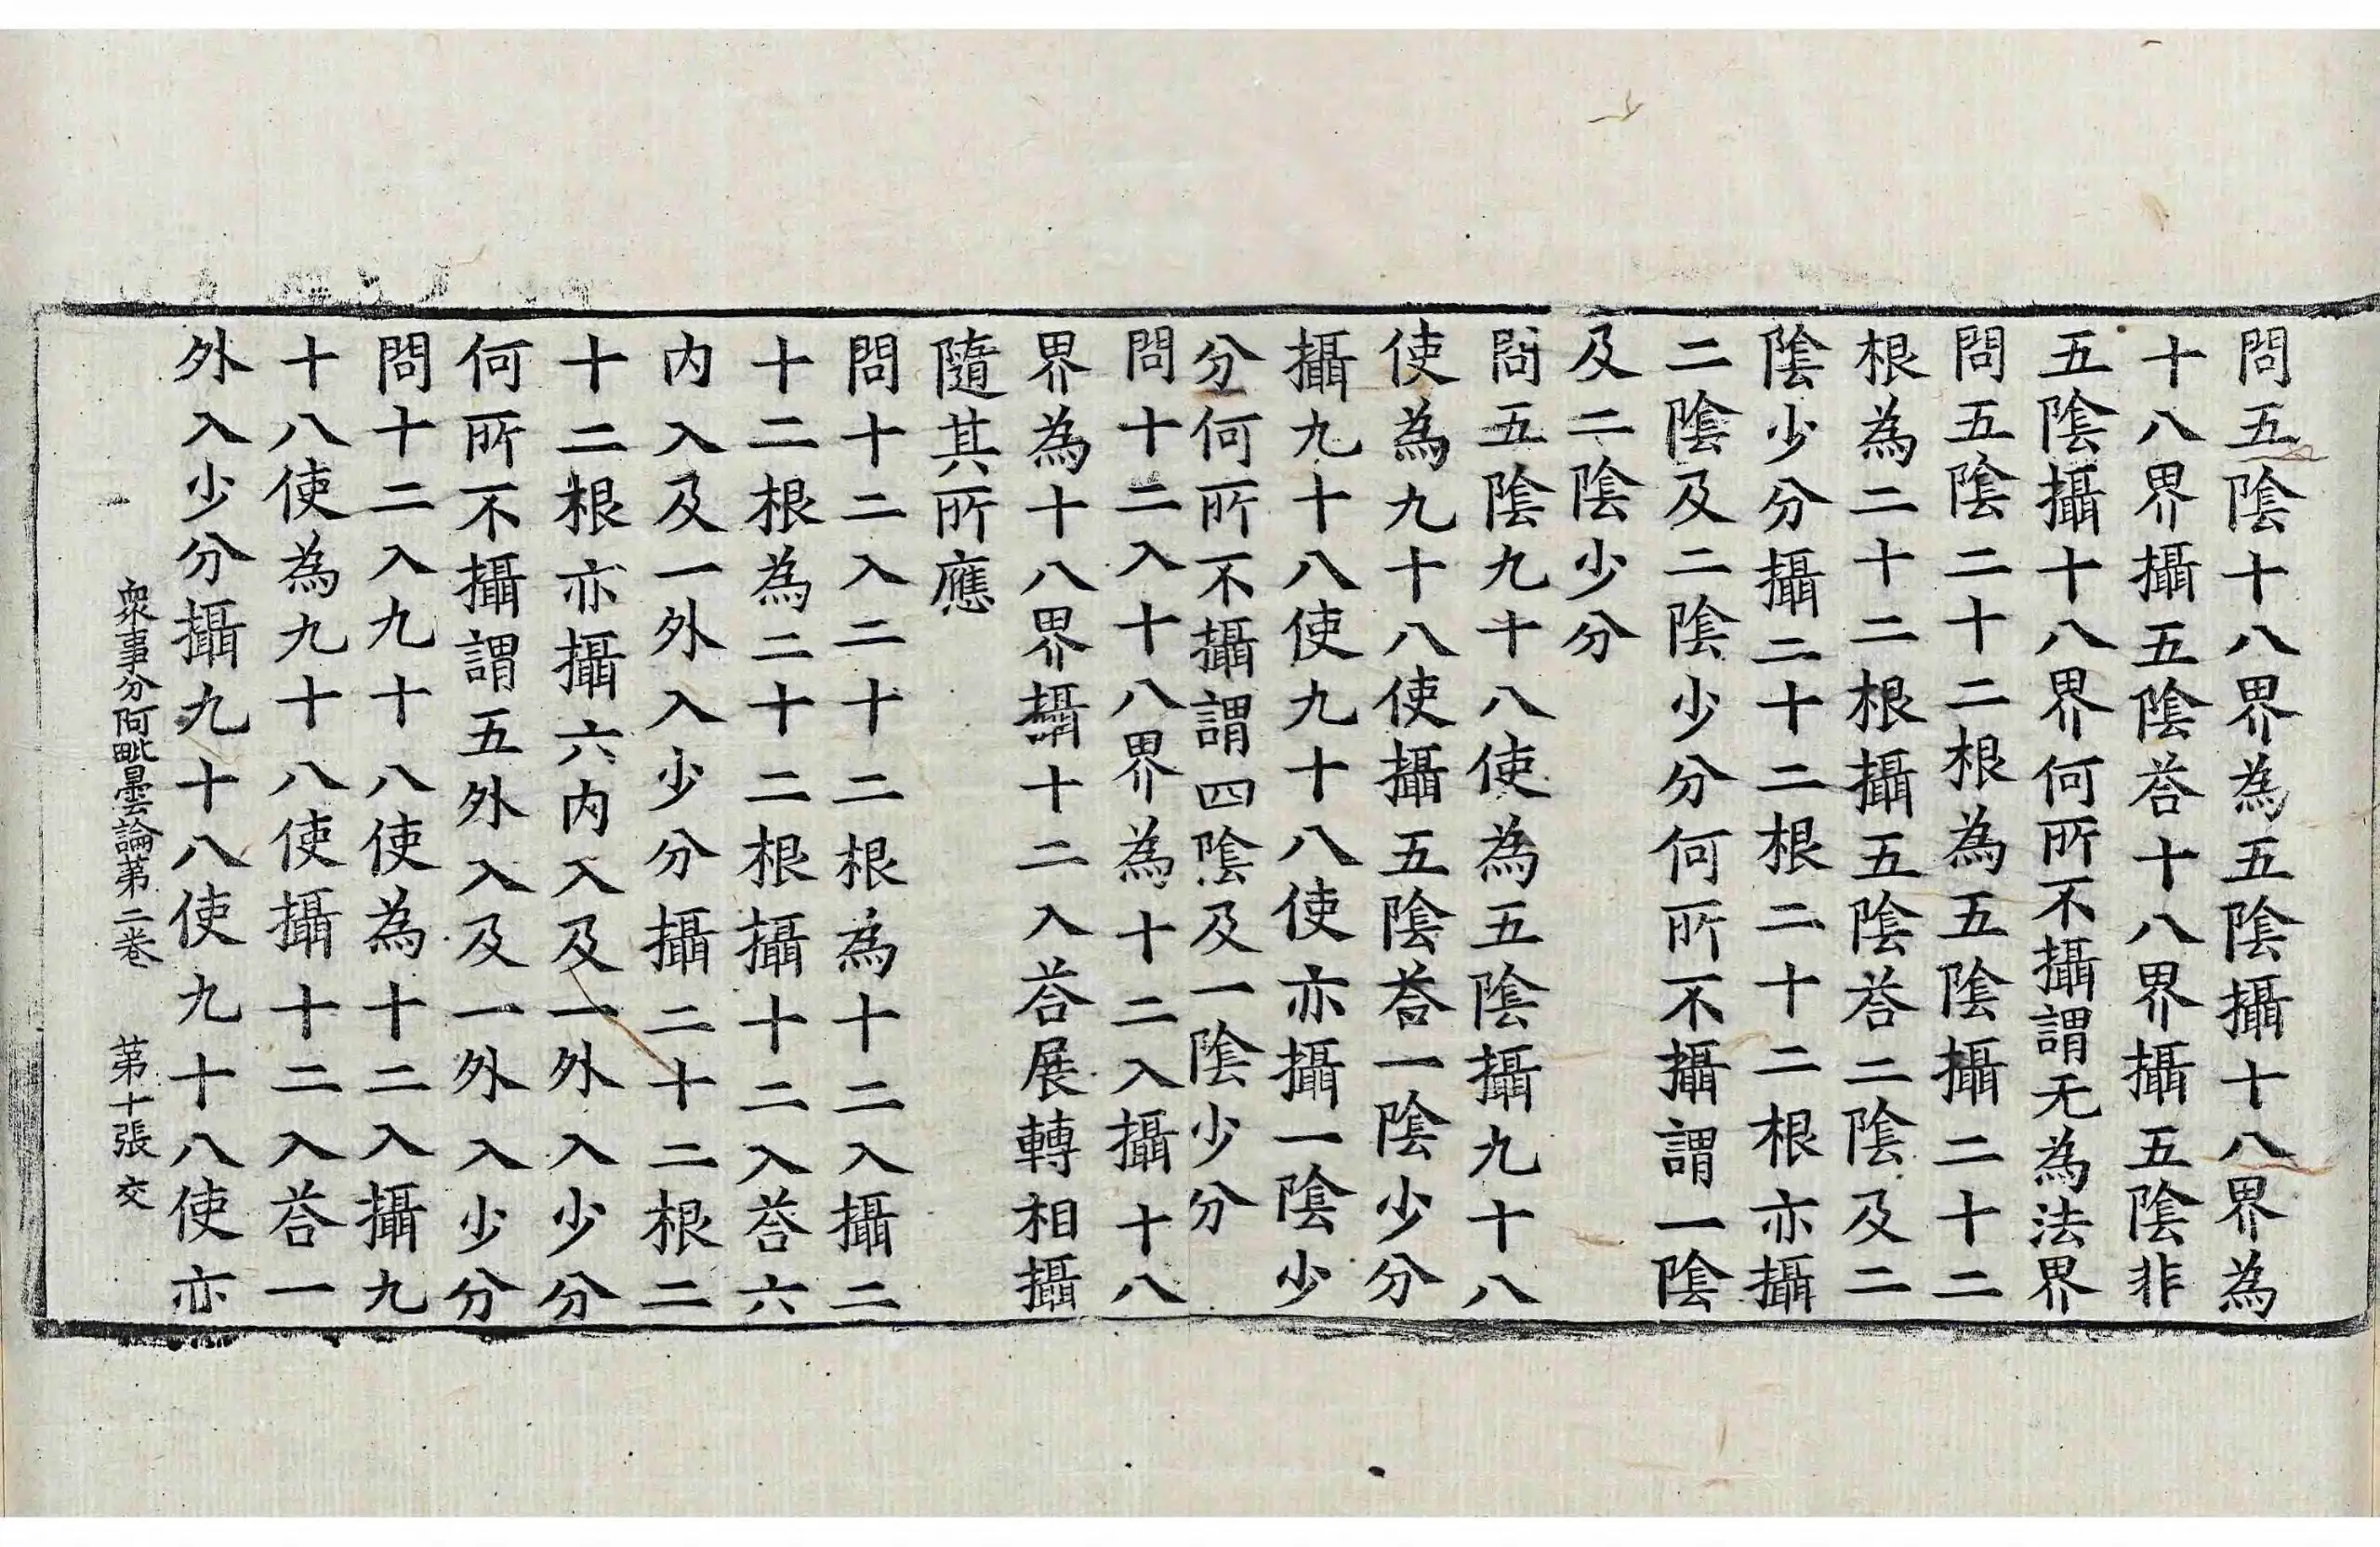 問五陰十八界為五陰攝十八界為
十八界攝五陰荅十八界攝五陰非
五陰攝十八界何所不攝謂无為法界
問五陰二十二根為五陰攝二十二
根為二十二根攝五陰荅二陰及二
陰少分攝二十二根二十二根亦攝
二陰及二陰少分何所不攝謂一陰
及二陰少分
問五陰九十八使為五陰攝九十八
使為九十八使攝五陰荅一陰少分
攝九十八使九十八使亦攝一陰少
分何所不攝謂四陰及一陰少分
問十二入十八界為十二入攝十八
界為十八界攝十二入荅展轉相攝
隨其所應
問十二入二十二根為十二入攝二
十二根為二十二根攝十二入荅六
內入及一外入少分攝二十二根二
十二根亦攝六內入及一外入少分
何所不攝謂五外入及一外入少分
問十二入九十八使為十二入攝九
十八使為九十八使攝十二入荅一
外入少分攝九十八使九十八使亦
衆事分阿毗曇論第二卷 第十張 交